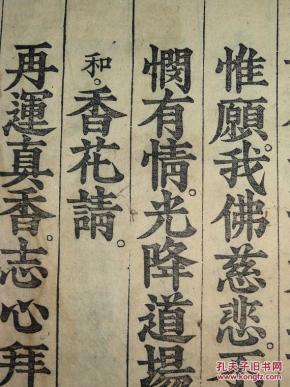 惟願。我佛慈悲。
憫有情。光降道場
和。香花請。
再運真香。志心拜
孔夫子旧书网